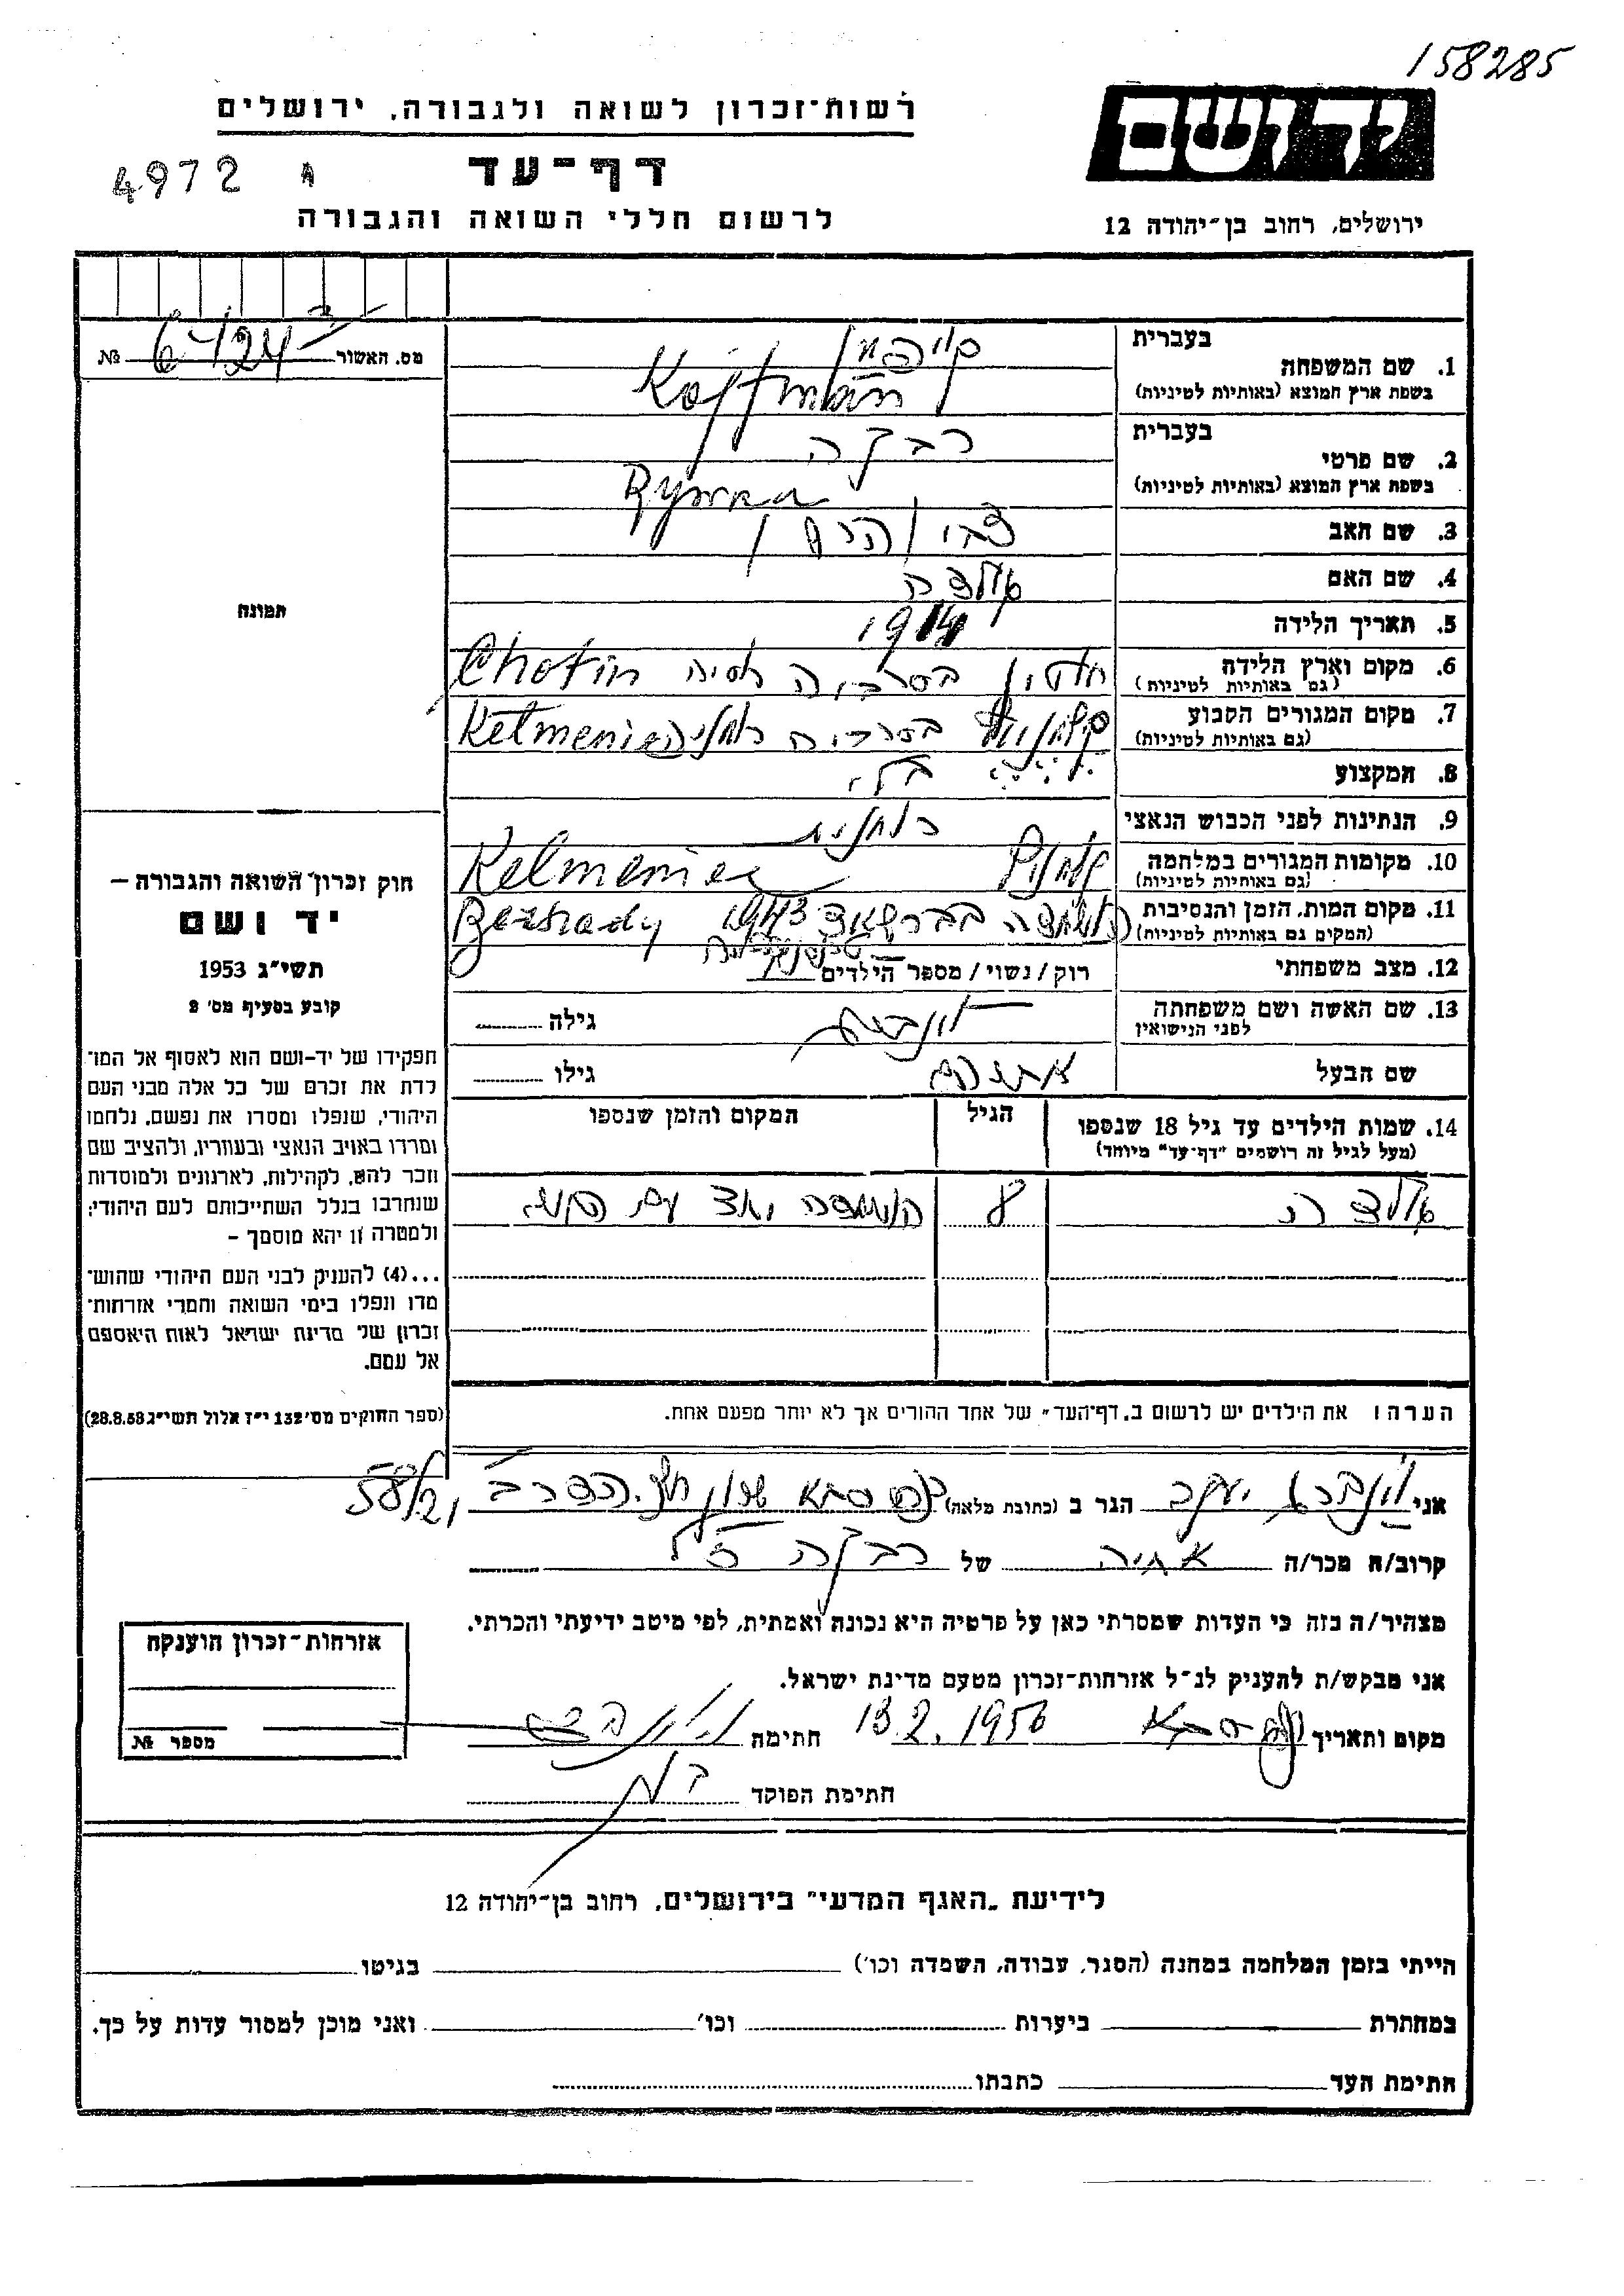 158285
יד ושם
רשות־זכרון לשואה ולגבורה, ירושלים
4972
דף־עד
לרשום חללי השואה והגבורה
ירושלים, רחוב בן־יהודה 12
מס. האשור №
1. שם המשפחה בעברית קויפמן
בשפת ארץ המוצא (באותיות לטיניות) Koffman
2. שם פרטי בעברית רבקה
בשפת ארץ המוצא (באותיות לטיניות) Rywka
3. שם האב צבי הרש
4. שם האם אלצה
5. תאריך הלידה 1914
6. מקום וארץ הלידה (גם באותיות לטיניות) חוטין בסרביה רוסיה Chotin
7. מקום המגורים הקבוע (גם באותיות לטיניות) בסרביה רומניה Kelmenie
8. המקצוע
9. הנתינות לפני הכבוש הנאצי רומנית
10. מקומות המגורים במלחמה (גם באותיות לטיניות) Kelmenie
11. מקום המות, הזמן והנסיבות (המקום גם באותיות לטיניות) הושמדה בברשאד 1943 Bershady
12. מצב משפחתי רוק/נשוי/מספר הילדים
13. שם האשה ושם משפחתה לפני הנישואין גילה
שם הבעל אברהם גילו
14. שמות הילדים עד גיל 18 שנספו (מעל לגיל זה רושמים "דף־עד" מיוחד) הגיל המקום והזמן שנספו
אלצה 8 הושמדה יחד עם
הערה: את הילדים יש לרשום ב„דף־העד" של אחד ההורים אך לא יותר מפעם אחת.
תמונה
חוק זכרון השואה והגבורה –
יד ושם
תשי"ג 1953
קובע בסעיף מס' 2
תפקידו של יד-ושם הוא לאסוף אל המו־
לדת את זכרם של כל אלה מבני העם
היהודי, שנפלו ומסרו את נפשם, נלחמו
ומרדו באויב הנאצי ובעוזריו, ולהציב שם
וזכר להם, לקהילות, לארגונים ולמוסדות
שנחרבו בגלל השתייכותם לעם היהודי;
ולמטרה זו יהא מוסמך –
...(4) להעניק לבני העם היהודי שהוש־
מדו ונפלו בימי השואה והמרי אזרחות־
זכרון של מדינת ישראל לאות היאספם
אל עמם.
(ספר החוקים מס' 132 י"ז אלול תשי"ג 28.8.53)
אני יעקב הגר ב (כתובת מלאה) כפר סבא שכון 58/21
קרוב/ה מכר/ה אחיה של רבקה ז"ל
מצהיר/ה בזה כי העדות שמסרתי כאן על פרטיה היא נכונה ואמתית, לפי מיטב ידיעתי והכרתי.
אני מבקש/ת להעניק לנ"ל אזרחות־זכרון מטעם מדינת ישראל.
מקום ותאריך כפר סבא 13.2.1956 חתימה
חתימת הפוקד
אזרחות־זכרון הוענקה
מספר №
לידיעת „האגף המדעי" בירושלים, רחוב בן־יהודה 12
הייתי בזמן המלחמה במחנה (הסגר, עבודה, השמדה וכו') בגיטו
במחתרת ביערות וכו' ואני מוכן למסור עדות על כך.
חתימת העד כתבתו